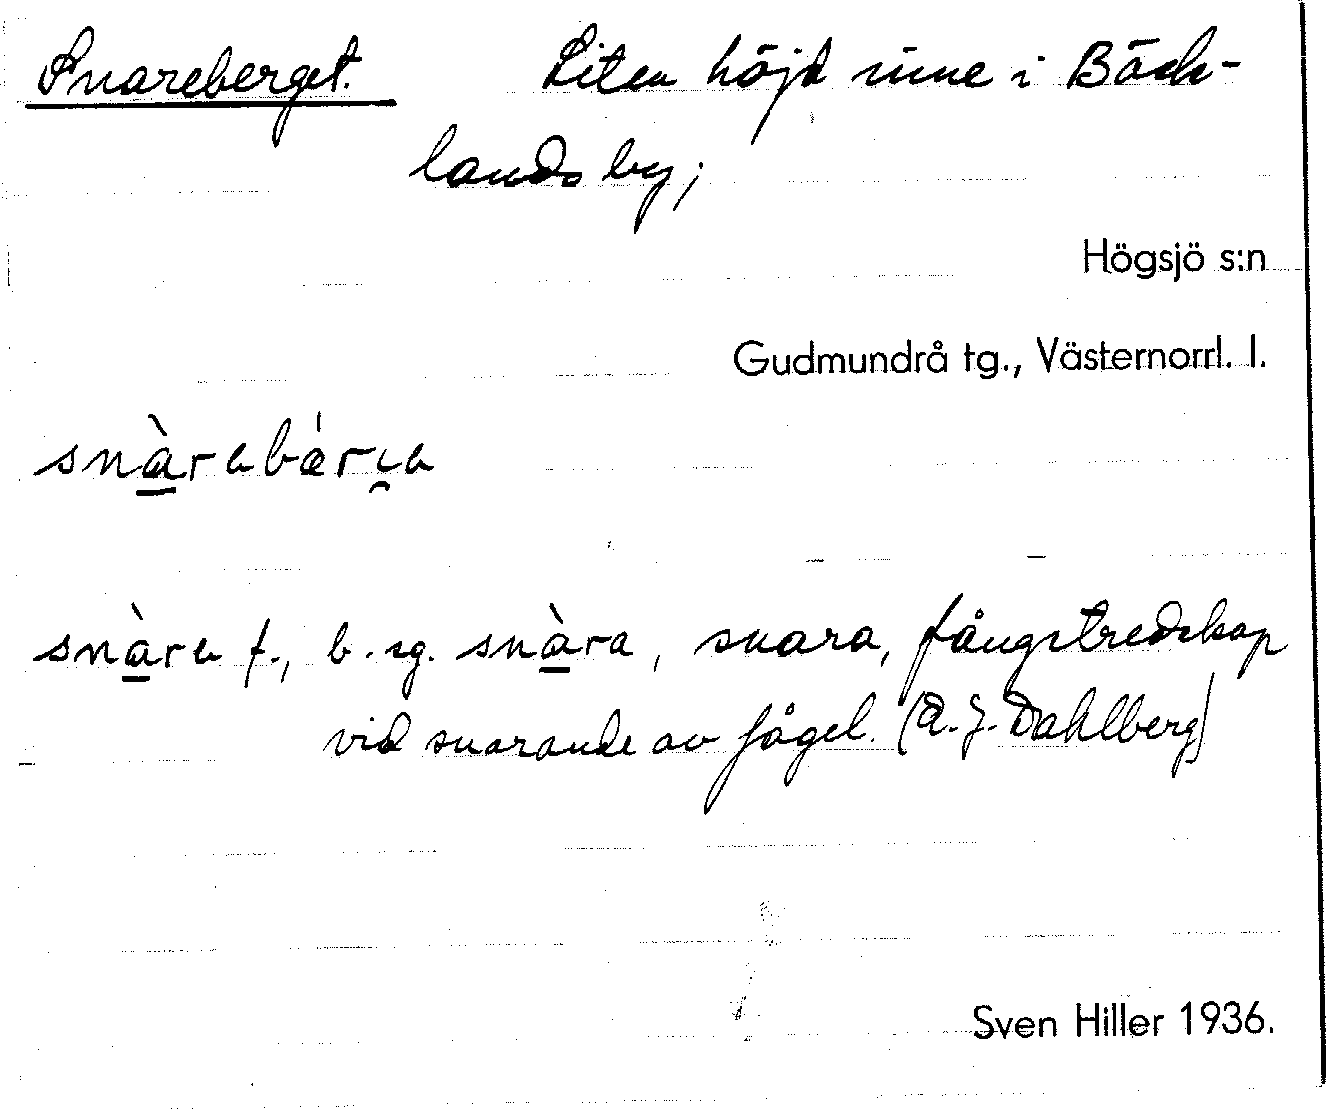 Snareberget. Liten höjd inne i Böck-
lands by;
Högsjö s:n
Gudmundrå tg., Västernorrl. l.
snàrabári̯a
snàra f., b. sg. snàra, snara, fångstredskap
vid snarande av fågel. (A. J. Dahlberg)
Sven Hiller 1936.